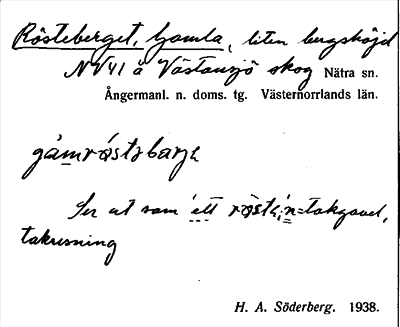 Rösteberget, Gamla, liten bergshöjd
NV41 å Västansjö skog Nätra sn.
Ångermanl. n. doms. tg. Västernorrlands län.
gåmröstabarjə
Ser ut som ett röste,n=takgavel,
takresning
H. A. Söderberg. 1938.